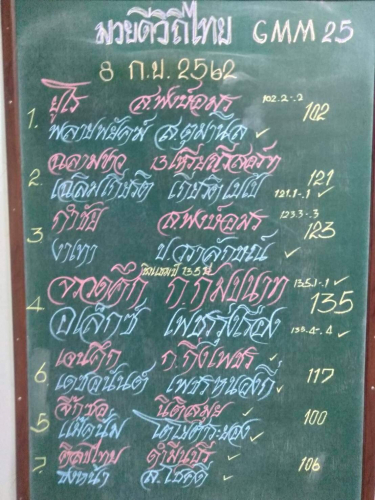 มวยดีวิถีไทย GMM 25
8 ก.ย. 2562
1. ยูโร ส.พงษ์อมร 102.2-.2 102
พลายพยัคฆ์ ส.ตุมานิล ✓
2. ฉลามขาว 13เหรียญรีสอร์ท 121
เฉลิมเกียรติ เกียรติ 121.1-.1 ✓
3 กำชัย ส.พงษ์อมร 123.3-.3 123
งาเทา ป.วราลักษณ์ ✓
ชิงแชมป์ 135 ป.
4. จรวดศึก ก.กมปนาท 135.1-.1 ✓ 135
อเล็กซ์ เพชรรุ่งเรือง 133.4-.4 ✓
6. เจนศึก ก.กิ่งเพชร ✓ 117
เดชอนันต์ ✓
5 จิ๊กซอ นิติสมัย ✓ 100
แม็คนั้ม ✓
7. ศิลป์ไทย ตำมีนบุรี ✓ 106
ส.โชคดี ✓